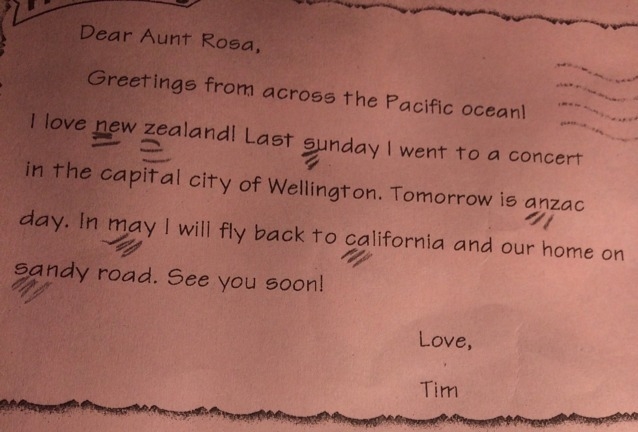 Dear Aunt Rosa,
Greetings from across the Pacific ocean!
I love new zealand! Last sunday I went to a concert
in the capital city of Wellington. Tomorrow is anzac
day. In may I will fly back to california and our home on
sandy road. See you soon!
Love,
Tim